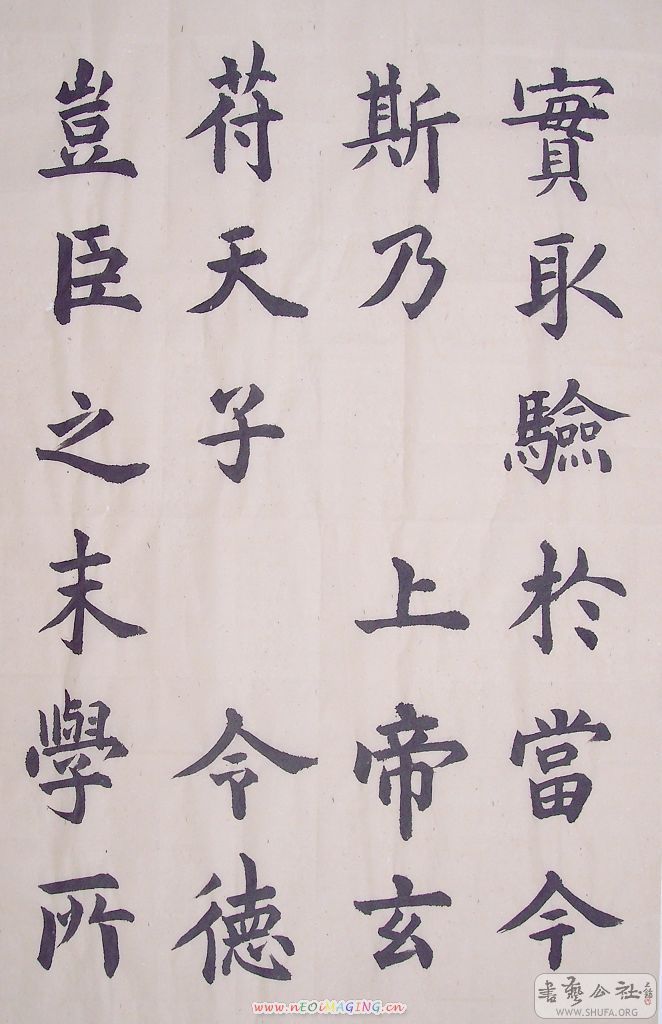 實取驗於當今
斯乃 上帝玄
苻天子 令德
豈臣之末學所
www.nEOiMAGiNG.cn
書藝公社
WWW.SHUFA.ORG